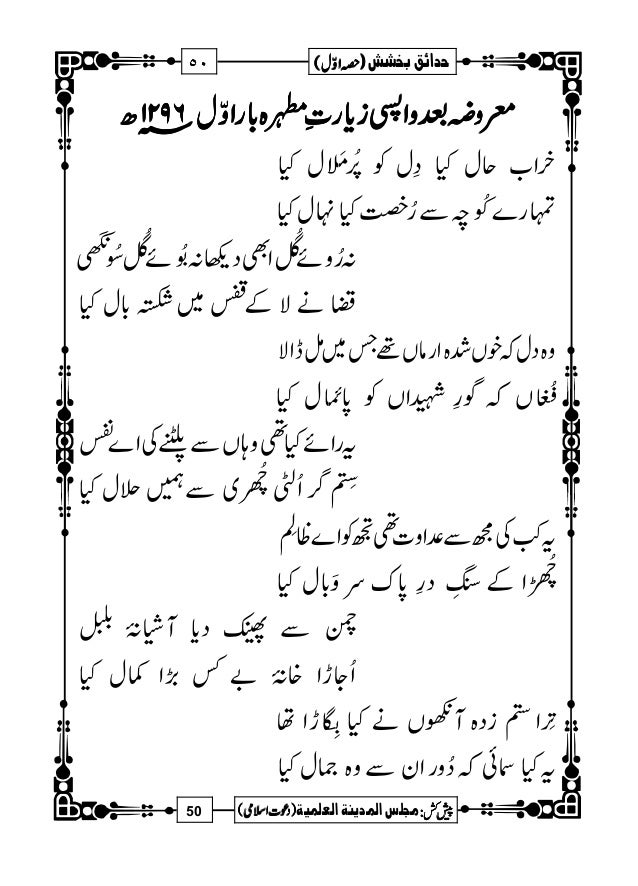 حدائق بخشش (حصہ اوّل)
۵۰
معروضہ بعد واپسی زیارتِ مطہرہ بار اوّل ۱۲۹۶ھ
خراب حال کیا دِل کو پُرمَلال کیا
تمہارے کُوچہ سے رُخصت کیا نہال کیا
نہ رُوئے گُل ابھی دیکھا نہ بُوئے گُل سُونگھی
قضا نے لا کے قفس میں شکستہ بال کیا
وہ دل کہ خوں شدہ ارماں تھے جس میں مل ڈالا
فُغاں کہ گورِ شہیداں کو پائمال کیا
یہ رائے کیا تھی وہاں سے پلٹنے کی اے نفس
سِتم گر اُلٹی چُھری سے ہمیں حلال کیا
یہ کب کی مجھ سے عداوت تھی تجھ کو اے ظالِم
چُھڑا کے سنگِ درِ پاک سر وَبال کیا
چمن سے پھینک دیا آشیانۂ بلبل
اُجاڑا خانۂ بے کس بڑا کمال کیا
تِرا ستم زدہ آنکھوں نے کیا بِگاڑا تھا
یہ کیا سمائی کہ دُور ان سے وہ جمال کیا
پیش کش: مجلس المدینۃ العلمیۃ (دعوتِ اسلامی)
50